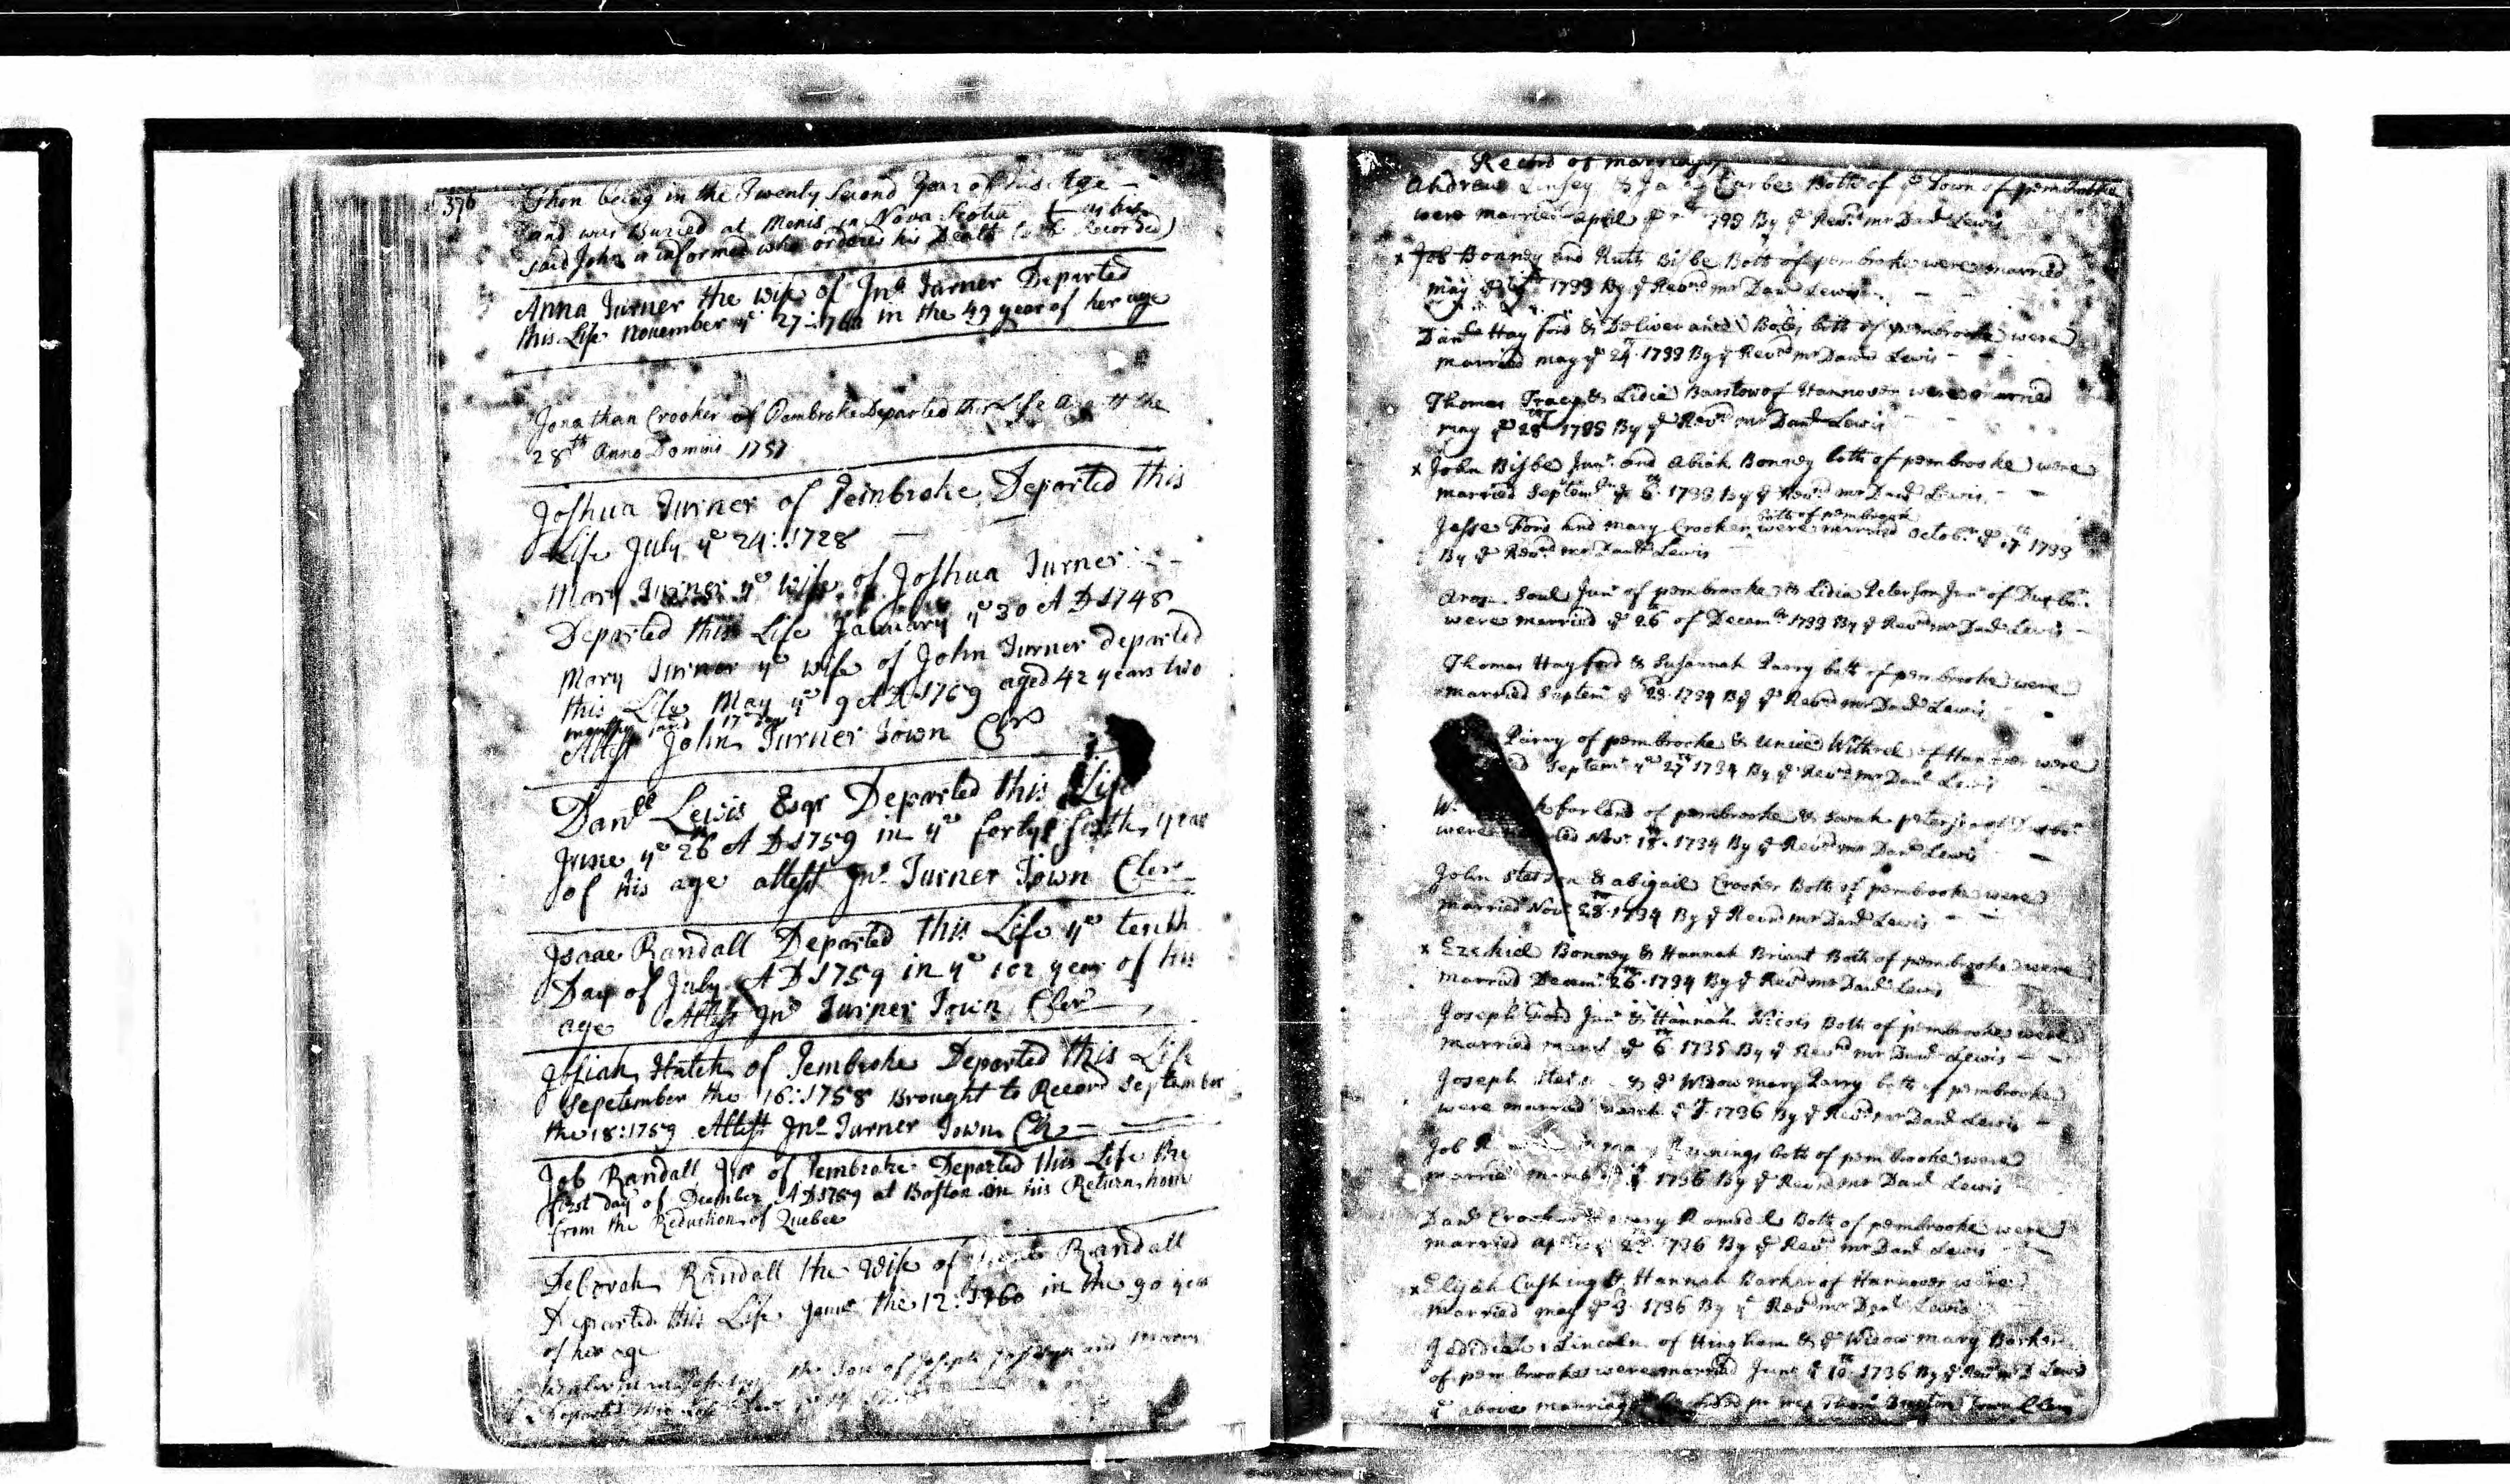 376
Then being in the Twenty Second Year of his Age
and was Buried at Menis in Nova Scotia as his
said John is informed who orders his Death to be Recorded
Anna Turner the Wife of Jno Turner Departed
this Life November ye 27 in the 49 year of her age
Jonathan Crooker of Pembroke Departed this Life the
28th Anno Domini 1757
Joshua Turner of Pembroke Departed this
Life July ye 24: 1728
Mary Turner ye Wife of Joshua Turner
Departed this Life January ye 30 A D 1748
Mary Turner ye Wife of John Turner departed
this Life May ye 9 A D 1759 aged 42 years two
months and 17 day
Attest John Turner Town Cler
Danll Lewis Esqr Departed this Life
June ye 26 A D 1759 in ye forty sixth year
of his age attest Jno Turner Town Cler
Isaac Randall Departed this Life ye tenth
Day of July A D 1759 in ye 102 year of his
age Attest Jno Turner Town Cler
Josiah Hatch of Pembroke Departed this Life
September the 16: 1758 Brought to Record September
the 18: 1759 Attest Jno Turner Town Cler
Job Randall Jnr of Pembroke Departed this Life the
first day of December A D 1759 at Boston in his Return home
from the Reduction of Quebec
Deborah Randall the Wife of Randall
Departed this Life Janur the 12: 1760 in the 90 year
of her age
the Son of Joseph and
Departed this Life
Record of marriages
Andrew Linsey & Both of ye Town of pembrooke
were married april By ye Revd mr Danll Lewis
x Job Bonney and Ruth Bisbe Both of pembrooke were married
may 1733 By ye Revd mr Danll Lewis
Danll Hayford & Deliverance Boles both of pembrooke were
married may ye 24 1733 By ye Revd mr Danll Lewis
Thomas Tracy & Lidia Barstow of Hannover were married
may ye 28th 1733 By ye Revd mr Danll Lewis
x John Bisbe Junr and Abiah Bonney both of pembrooke were
married Septemr ye 6 1733 By ye Revd mr Danll Lewis
Jesse Ford and mary Crooker both of pembrook were married Octobr ye 17th 1733
By ye Revd mr Danll Lewis
Aron Soul Junr of pembrooke & Lidia Peterson Junr of Duxbo
were married ye 26 of Decemr 1733 By ye Revd mr Danll Lewis
Thomas Hayford & Susannah Parry both of pembrooke were
married Septemr ye 23 1734 By ye Revd mr Danll Lewis
Parry of pembrooke & Unice Withrel of Hannover were
Septemr ye 27th 1734 By ye Revd mr Danll Lewis
farland of pembrooke & Sarah peterson of
were Novr 18 1734 By ye Revd mr Danll Lewis
John Stetson & abigail Crooker Both of pembrooke were
married Novr 28 1734 By ye Revd mr Danll Lewis
x Ezekiel Bonney & Hannah Briant Both of pembrooke were
married Decemr 26 1734 By ye Revd mr Danll Lewis
Joseph Ford Junr & Hannah Nicols Both of pembrooke were
married march ye 6 1735 By ye Revd mr Danll Lewis
Joseph & ye Widow mary Parry both of pembrooke
were married march 1736 By ye Revd mr Danll Lewis
Job mary Jennings both of pembrooke were
married 1736 By ye Revd mr Danll Lewis
Danll Crooker & mary Ramsdel Both of pembrooke were
married 1736 By ye Revd mr Danll Lewis
x Elijah Cushing & Hannah Barker of Hannover were
married may ye 3 1736 By ye Revd mr Danll Lewis
Jedidiah Lincoln of Hingham & ye Widow mary Barker
of pembrooke were married June ye 10 1736 By ye Revd mr D Lewis
ye above marriages Town Clerk